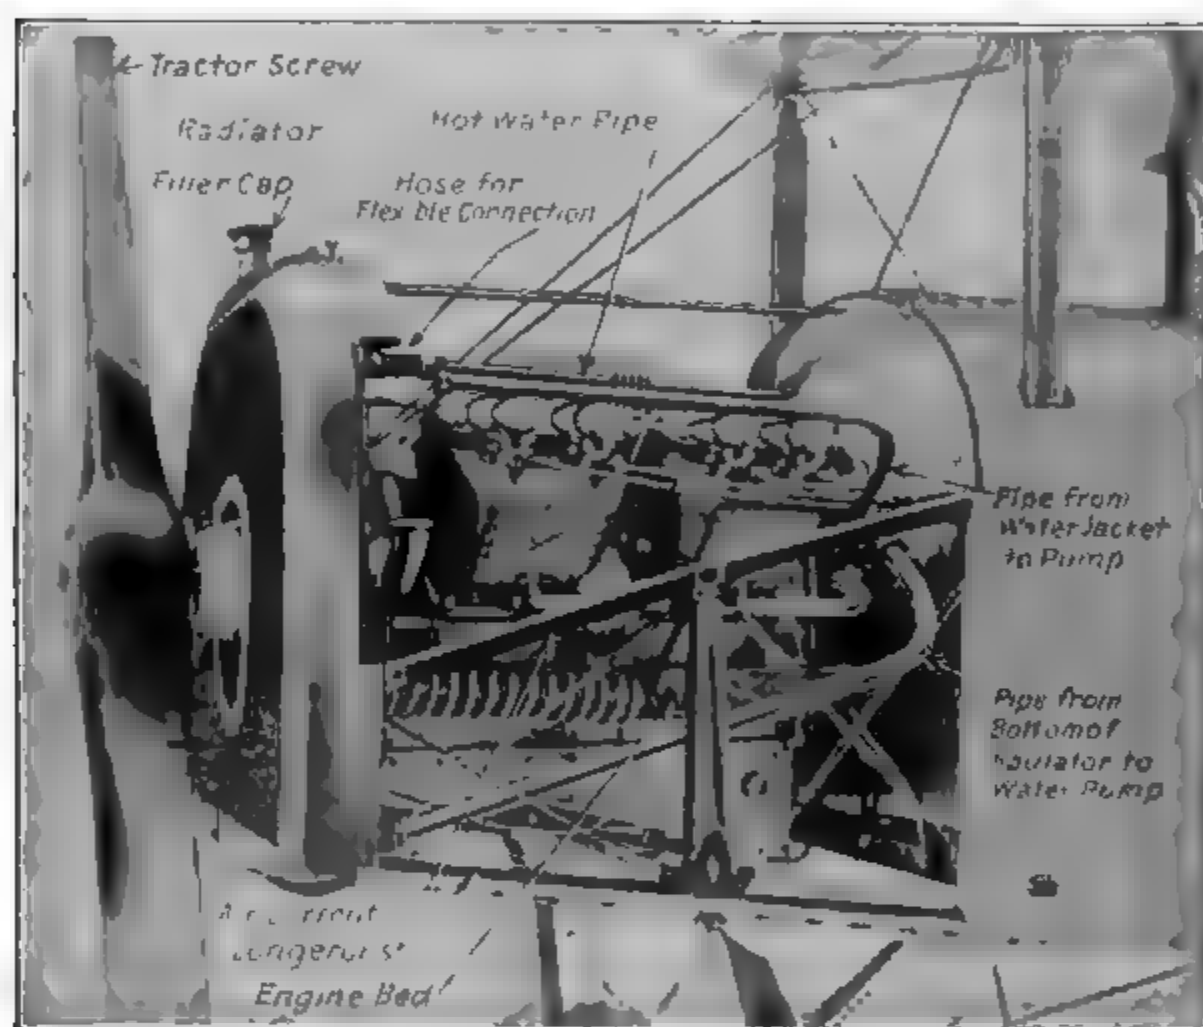 Tractor Screw
Radiator
Filler Cap
Hot Water Pipe
Hose for
Flexible Connection
Pipe from
Water Jacket
to Pump
Pipe from
Bottom of
Radiator to
Water Pump
Engine Bed